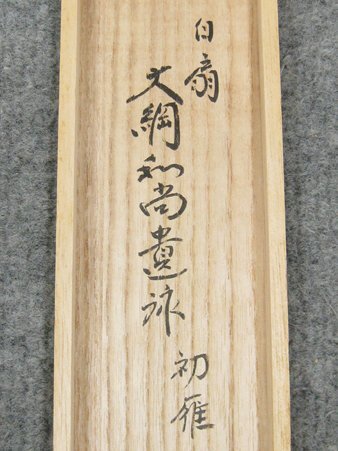 白扇
大綱和尚遺詠
初雁